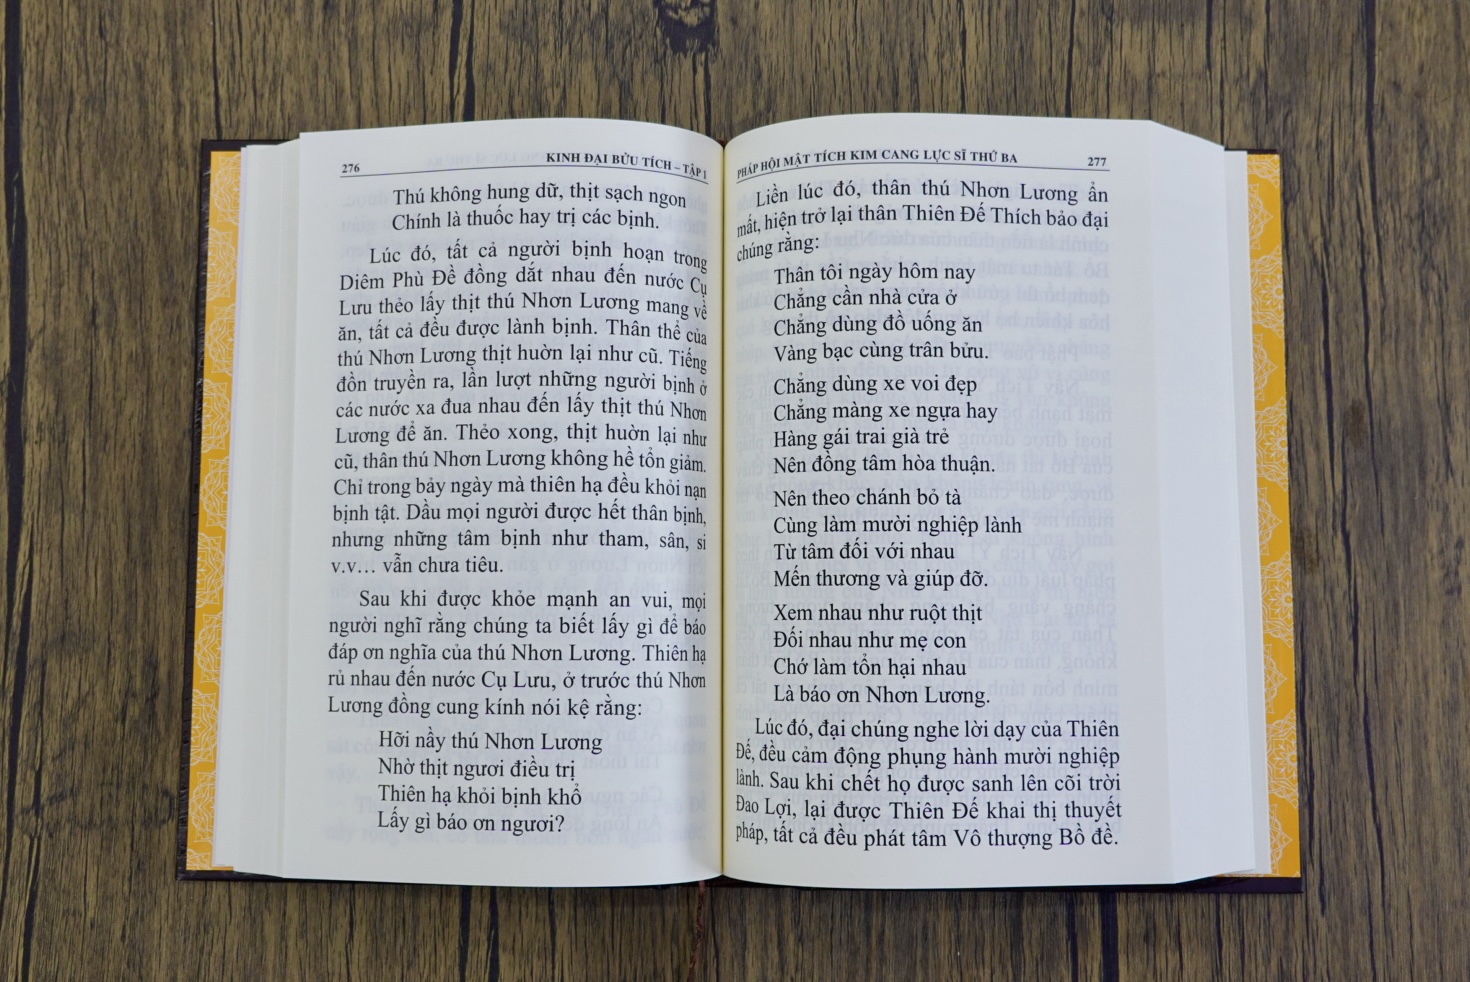 276
KINH ĐẠI BỬU TÍCH – TẬP 1
Thú không hung dữ, thịt sạch ngon
Chính là thuốc hay trị các bịnh.
Lúc đó, tất cả người bịnh hoạn trong
Diêm Phù Đề đồng dắt nhau đến nước Cụ
Lưu thẻo lấy thịt thú Nhơn Lương mang về
ăn, tất cả đều được lành bịnh. Thân thể của
thú Nhơn Lương thịt huờn lại như cũ. Tiếng
đồn truyền ra, lần lượt những người bịnh ở
các nước xa đua nhau đến lấy thịt thú Nhơn
Lương để ăn. Thẻo xong, thịt huờn lại như
cũ, thân thú Nhơn Lương không hề tổn giảm.
Chỉ trong bảy ngày mà thiên hạ đều khỏi nạn
bịnh tật. Dầu mọi người được hết thân bịnh,
nhưng những tâm bịnh như tham, sân, si
v.v… vẫn chưa tiêu.
Sau khi được khỏe mạnh an vui, mọi
người nghĩ rằng chúng ta biết lấy gì để báo
đáp ơn nghĩa của thú Nhơn Lương. Thiên hạ
rủ nhau đến nước Cụ Lưu, ở trước thú Nhơn
Lương đồng cung kính nói kệ rằng:
Hỡi nầy thú Nhơn Lương
Nhờ thịt ngươi điều trị
Thiên hạ khỏi bịnh khổ
Lấy gì báo ơn ngươi?
PHÁP HỘI MẬT TÍCH KIM CANG LỰC SĨ THỨ BA
277
Liền lúc đó, thân thú Nhơn Lương ẩn
mất, hiện trở lại thân Thiên Đế Thích bảo đại
chúng rằng:
Thân tôi ngày hôm nay
Chẳng cần nhà cửa ở
Chẳng dùng đồ uống ăn
Vàng bạc cùng trân bửu.
Chẳng dùng xe voi đẹp
Chẳng màng xe ngựa hay
Hàng gái trai già trẻ
Nên đồng tâm hòa thuận.
Nên theo chánh bỏ tà
Cùng làm mười nghiệp lành
Từ tâm đối với nhau
Mến thương và giúp đỡ.
Xem nhau như ruột thịt
Đối nhau như mẹ con
Chớ làm tổn hại nhau
Là báo ơn Nhơn Lương.
Lúc đó, đại chúng nghe lời dạy của Thiên
Đế, đều cảm động phụng hành mười nghiệp
lành. Sau khi chết họ được sanh lên cõi trời
Đao Lợi, lại được Thiên Đế khai thị thuyết
pháp, tất cả đều phát tâm Vô thượng Bồ đề.